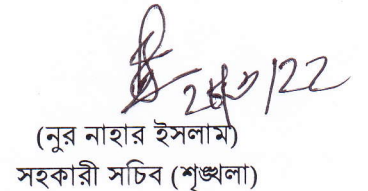 (নুর নাহার ইসলাম)
সহকারী সচিব (শৃঙ্খলা)